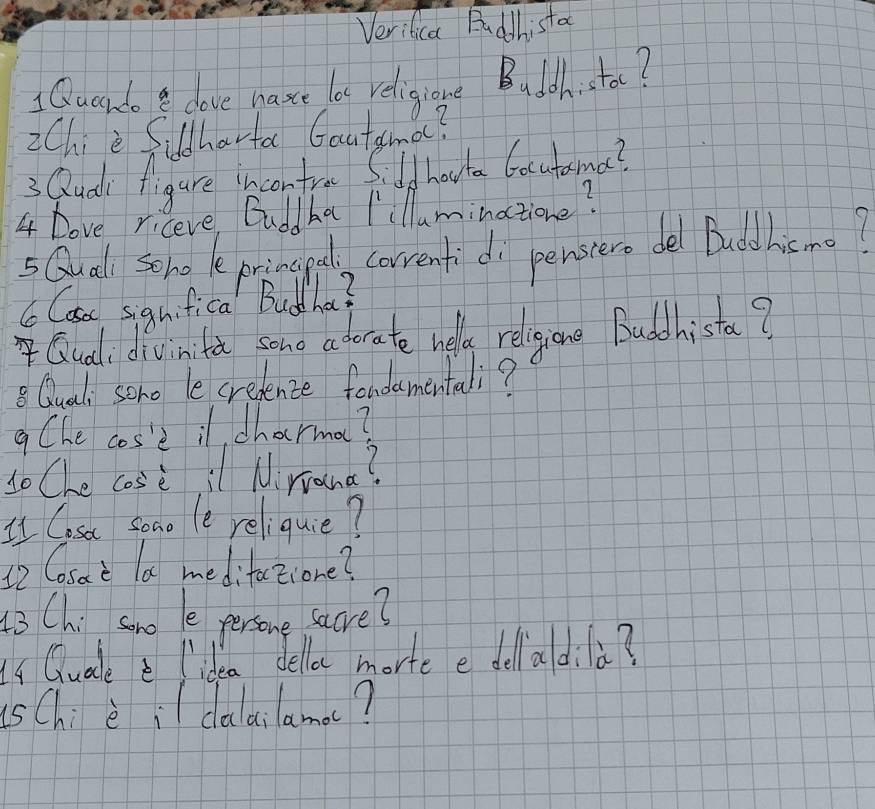 Verifica Buddhista
1 Quando e dove nasce la religione Buddhista?
2 Chi è Siddharta Gautama?
3 Quali figure incontra Siddharta Gautama?
4 Dove riceve Buddha l'illuminazione?
5 Quali sono le principali correnti di pensiero del Buddhismo?
6 Cosa significa Buddha?
7 Quali divinità sono adorate nella religione Buddhista?
8 Quali sono le credenze fondamentali?
9 Che cos'è il dharma?
10 Che cos'è il Nirvana?
11 Cosa sono le reliquie?
12 Cosa è la meditazione?
13 Chi sono le persone sacre?
14 Quale è l'idea della morte e dell'aldilà?
15 Chi è il dalailama?